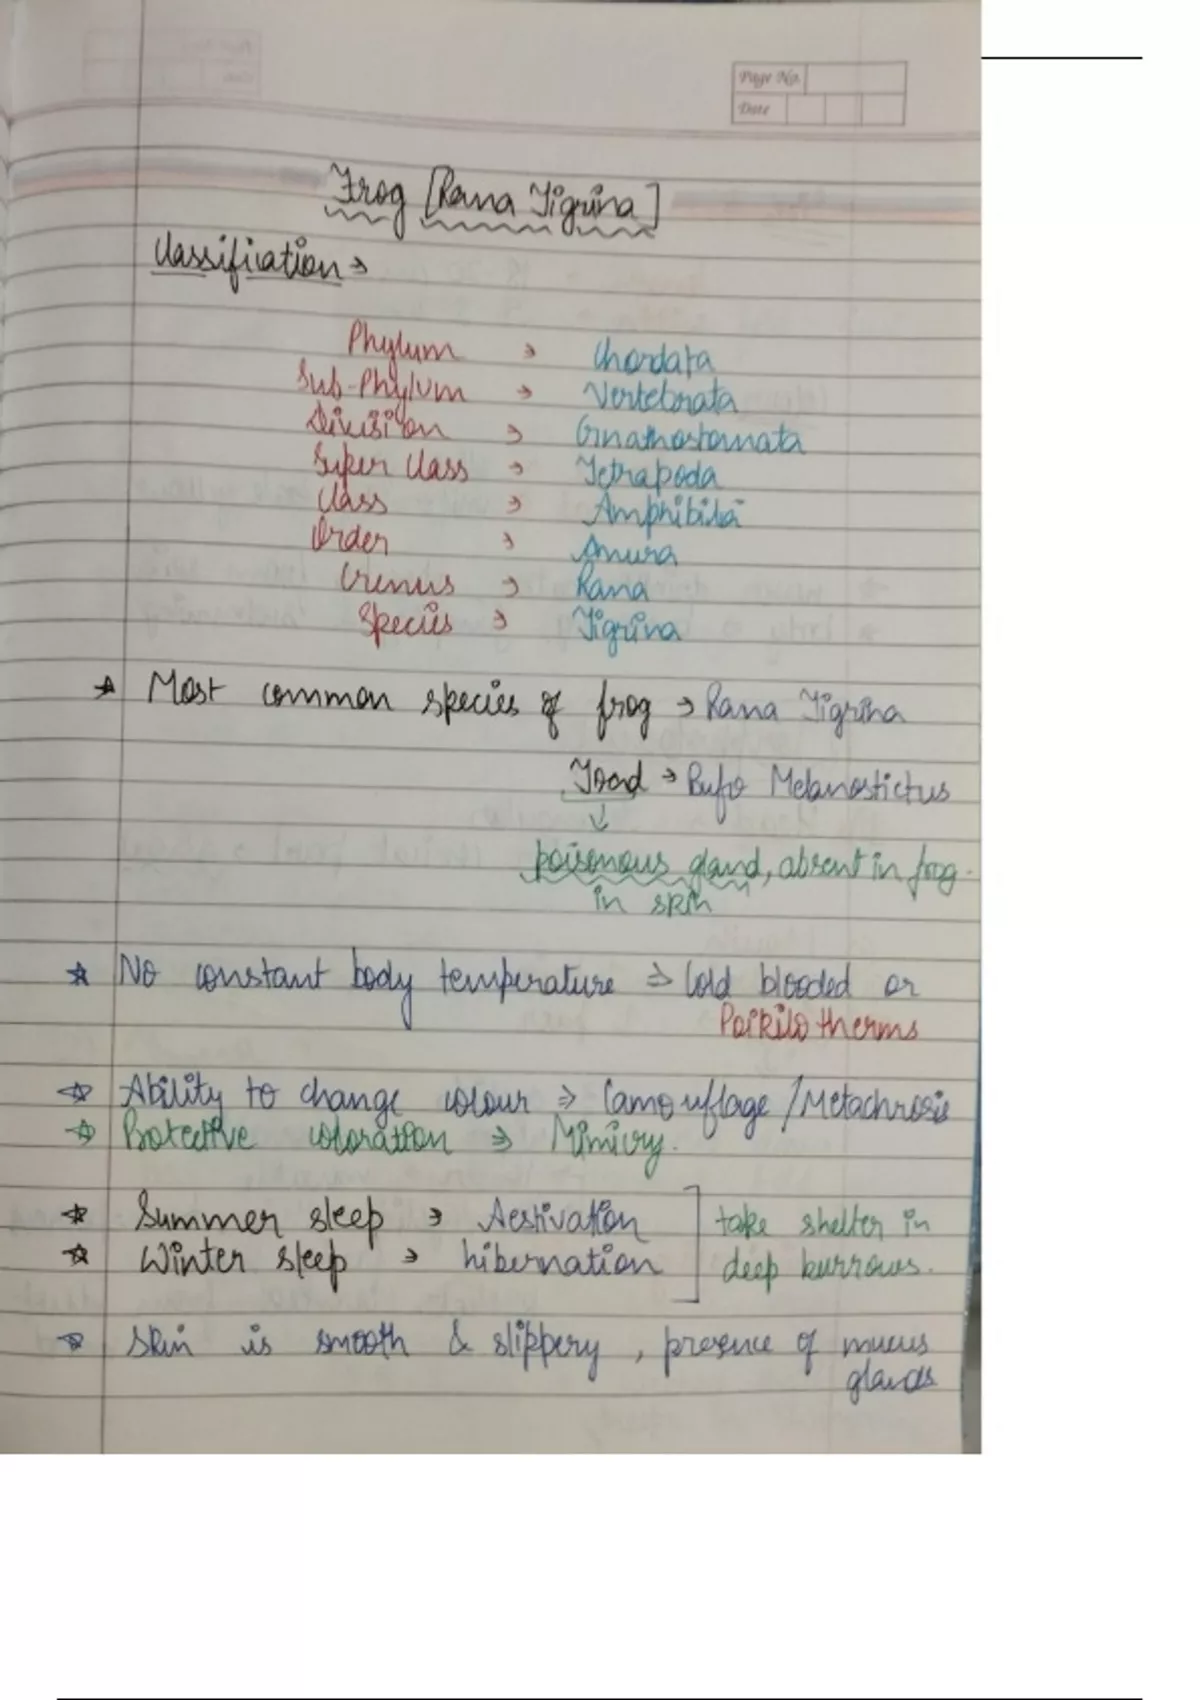 Page No.
Date
Frog [Rana Tigrina]
Classification →
Phylum → Chordata
Sub-Phylum → Vertebrata
Division → Gnathostomata
Super Class → Tetrapoda
Class → Amphibia
Order → Anura
Genus → Rana
Species → Tigrina
* Most common species of frog → Rana Tigrina
Toad → Bufo Melanostictus
↓
poisonous gland, absent in frog.
in skin
* No constant body temperature ⇒ Cold blooded or
Poikilotherms
* Ability to change colour ⇒ Camouflage / Metachrosis
* Protective coloration ⇒ Mimicry.
* Summer sleep → Aestivation ] take shelter in
* Winter sleep → hibernation ] deep burrows.
* Skin is smooth & slippery, presence of mucus
glands